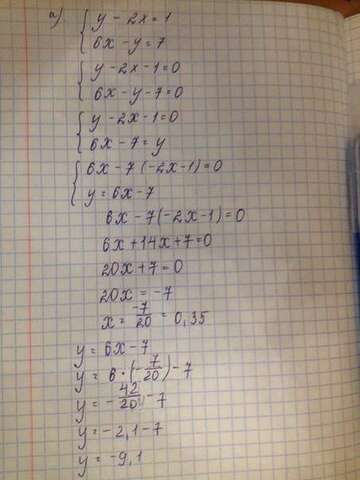 а) { y - 2x = 1
{ 6x - y = 7
{ y - 2x - 1 = 0
{ 6x - y - 7 = 0
{ y - 2x - 1 = 0
{ 6x - 7 = y
{ 6x - 7 (-2x - 1) = 0
{ y = 6x - 7
6x - 7 (-2x - 1) = 0
6x + 14x + 7 = 0
20x + 7 = 0
20x = -7
x = -7/20 = 0,35
y = 6x - 7
y = 6 · (-7/20) - 7
y = -42/20 - 7
y = -2,1 - 7
y = -9,1